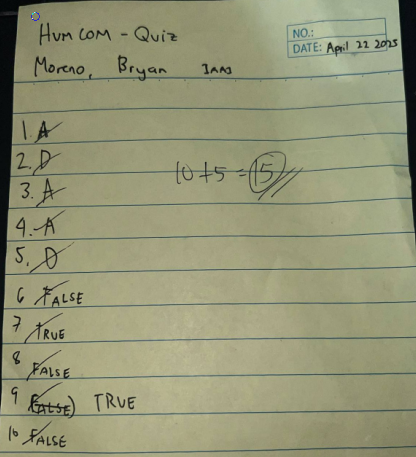 HUMCOM - QUIZ
NO.:
DATE: April 22 2025
Moreno, Bryan
1. A
2. D
10 + 5 = 15
3. A
4. A
5. D
6 FALSE
7 TRUE
8 FALSE
9 (FALSE) TRUE
10 FALSE